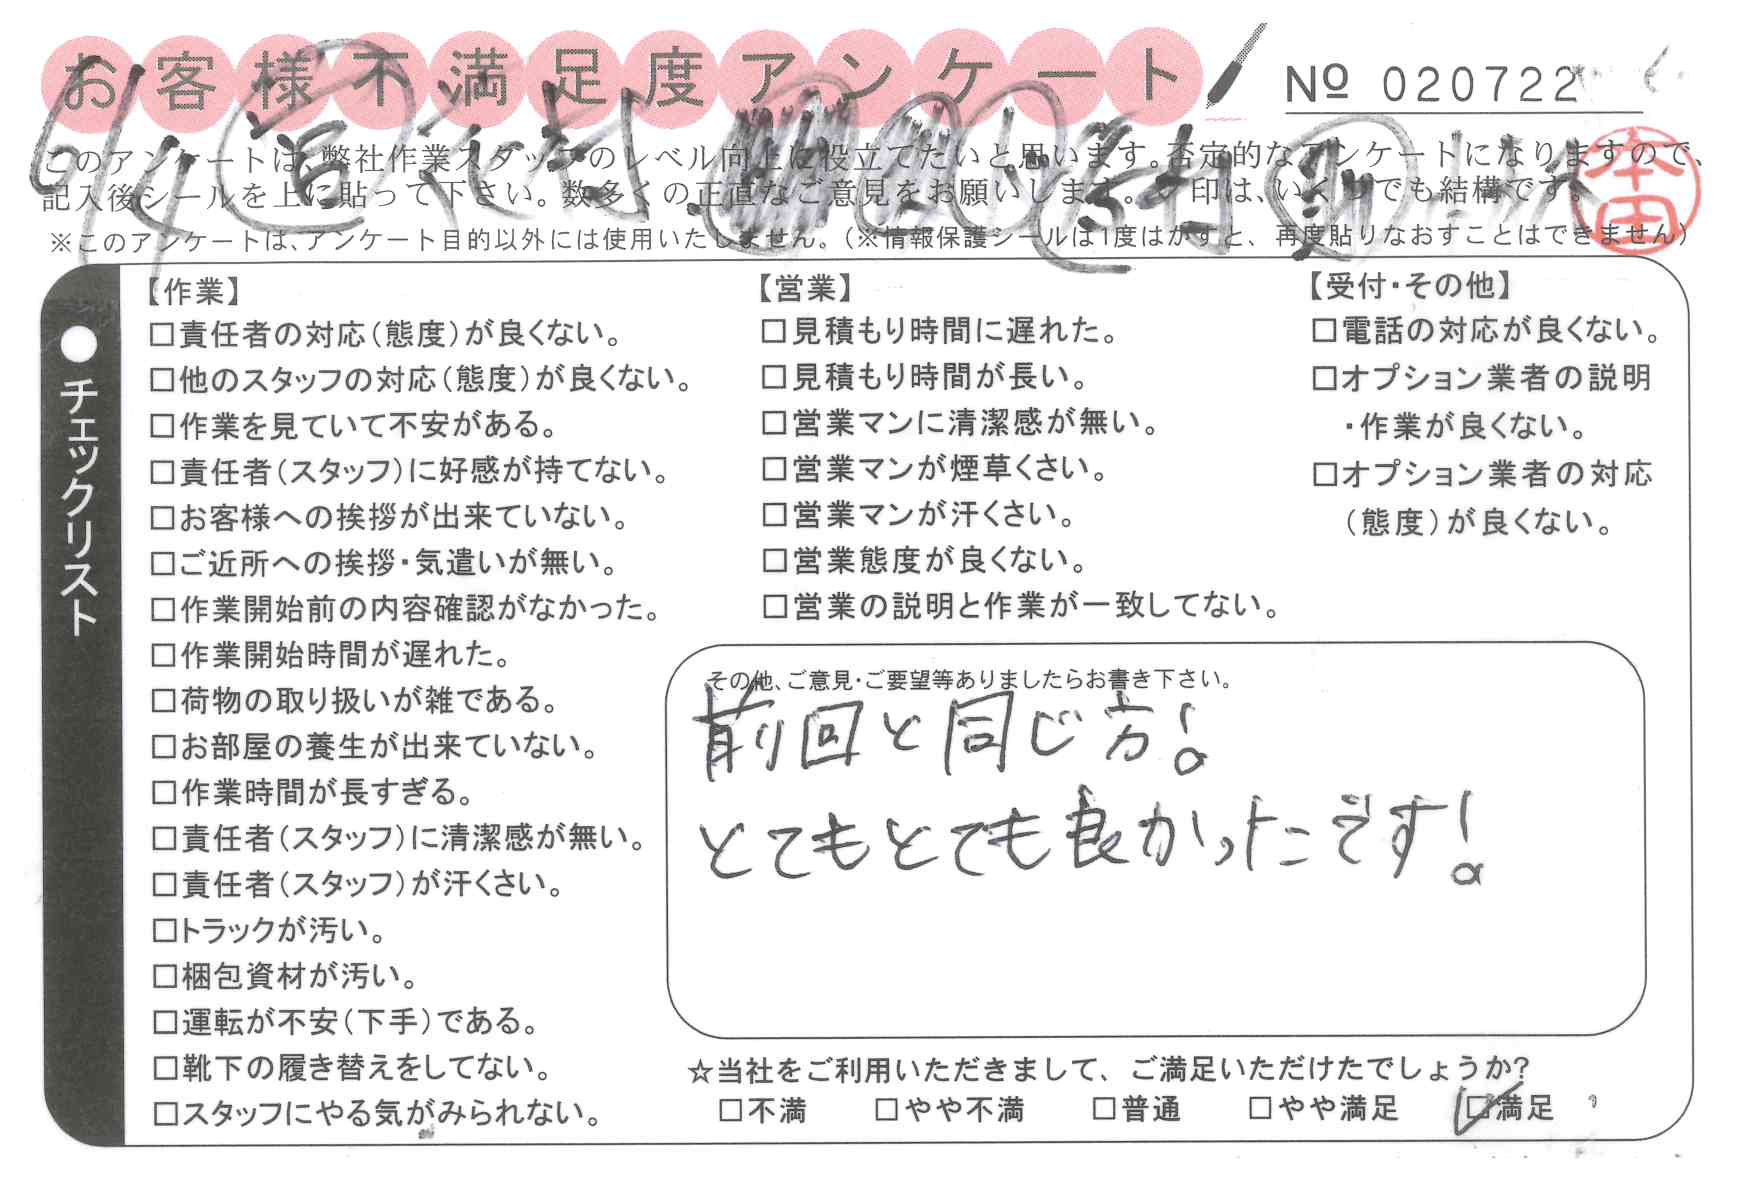 お客様不満足度アンケート
№ 020722
このアンケートは、弊社作業スタッフのレベル向上に役立てたいと思います。否定的なアンケートになりますので、
記入後シールを上に貼って下さい。数多くの正直なご意見をお願いします。レ印は、いくつでも結構です。
※このアンケートは、アンケート目的以外には使用いたしません。(※情報保護シールは1度はがすと、再度貼りなおすことはできません)
本田
●チェックリスト
【作業】
□責任者の対応(態度)が良くない。
□他のスタッフの対応(態度)が良くない。
□作業を見ていて不安がある。
□責任者(スタッフ)に好感が持てない。
□お客様への挨拶が出来ていない。
□ご近所への挨拶・気遣いが無い。
□作業開始前の内容確認がなかった。
□作業開始時間が遅れた。
□荷物の取り扱いが雑である。
□お部屋の養生が出来ていない。
□作業時間が長すぎる。
□責任者(スタッフ)に清潔感が無い。
□責任者(スタッフ)が汗くさい。
□トラックが汚い。
□梱包資材が汚い。
□運転が不安(下手)である。
□靴下の履き替えをしてない。
□スタッフにやる気がみられない。
【営業】
□見積もり時間に遅れた。
□見積もり時間が長い。
□営業マンに清潔感が無い。
□営業マンが煙草くさい。
□営業マンが汗くさい。
□営業態度が良くない。
□営業の説明と作業が一致してない。
【受付・その他】
□電話の対応が良くない。
□オプション業者の説明
・作業が良くない。
□オプション業者の対応
(態度)が良くない。
その他、ご意見・ご要望等ありましたらお書き下さい。
前回と同じ方!
とてもとても良かったです!
☆当社をご利用いただきまして、ご満足いただけたでしょうか?
□不満 □やや不満 □普通 □やや満足 ☑満足